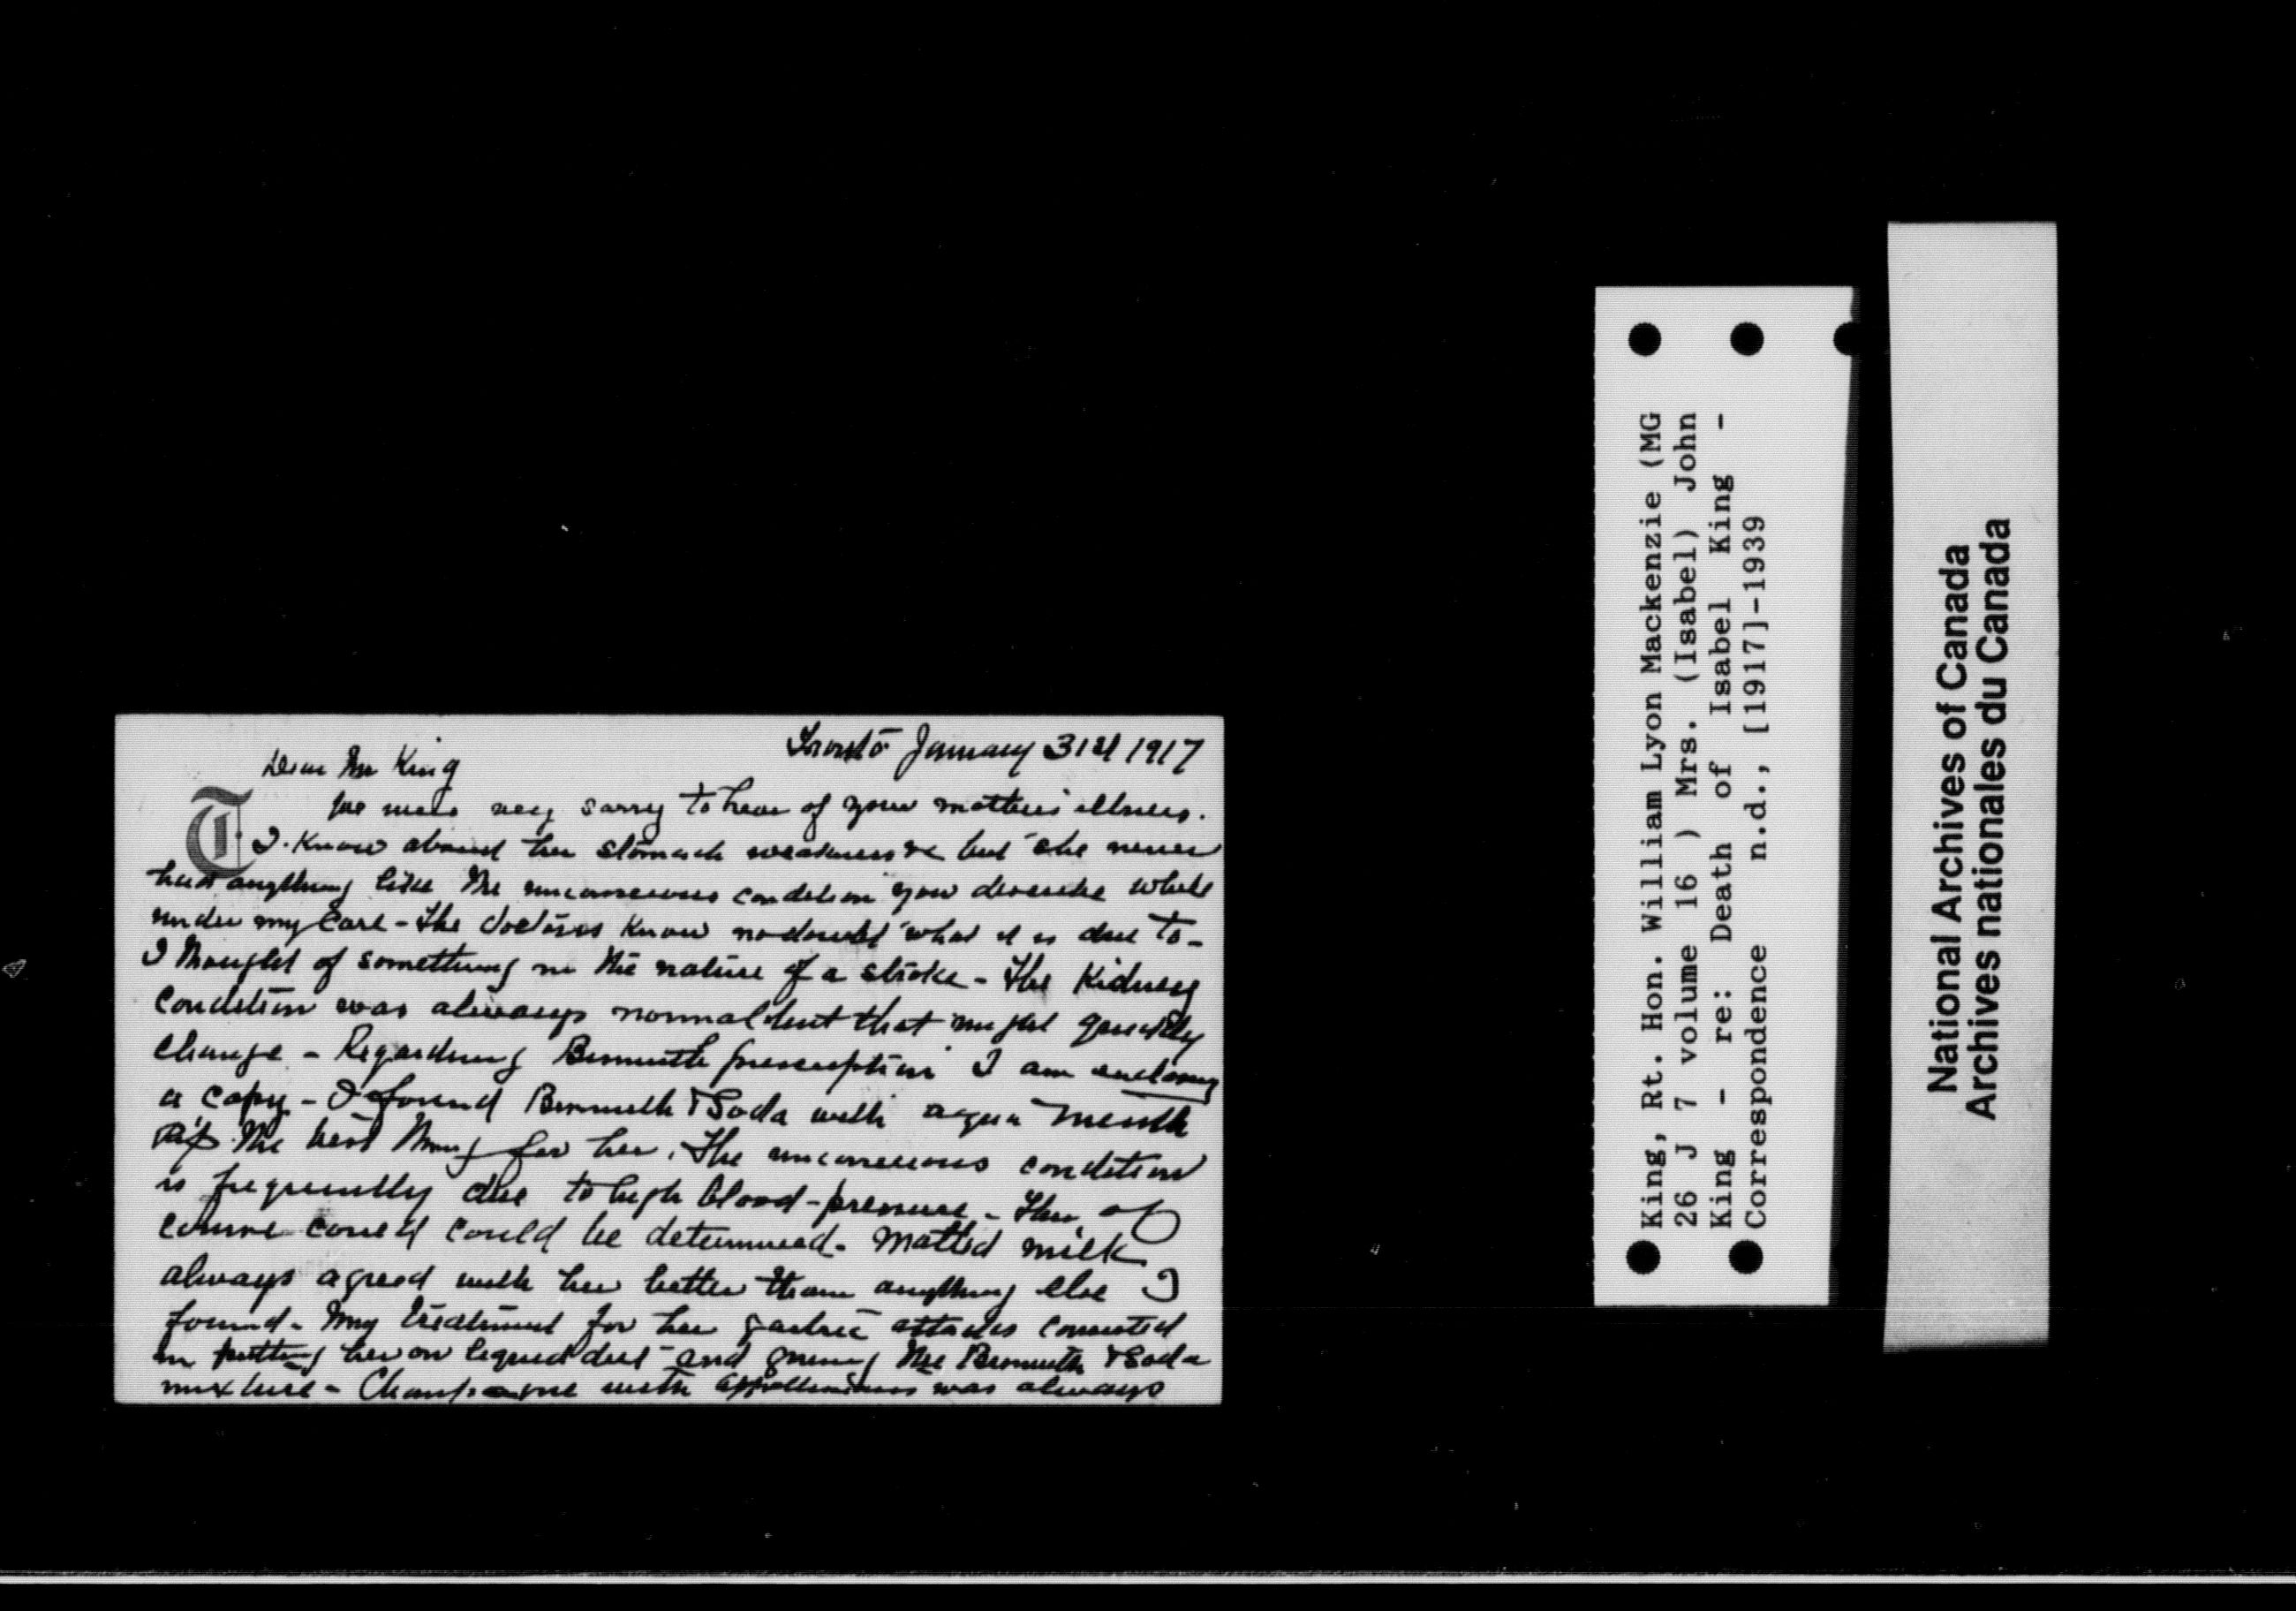 Toronto January 31st 1917
Dear Mr King
T
We were very sorry to hear of your mothers illness.
I know about her stomach weakness &c but she never
had anything like the unconscious condition you describe while
under my care - The doctors know no doubt what it is due to -
I thought of something in the nature of a stroke - The Kidney
condition was always normal but that might quickly
change - Regarding Bismuth prescription I am enclosing
a copy - I found Bismuth & Soda with aqua menth
pip the best thing for her. The unconscious condition
is frequently due to high blood-pressure - This of
course could could be determined - Malted milk
always agreed with her better than anything else I
found - My treatment for her gastric attacks consisted
in putting her on liquid diet and giving the Bismuth & Soda
mixture - Champagne with was always
King, Rt. Hon. William Lyon Mackenzie (MG
26 J 7 volume 16 ) Mrs. (Isabel) John
King - re: Death of Isabel King -
Correspondence n.d., [1917]-1939
National Archives of Canada
Archives nationales du Canada